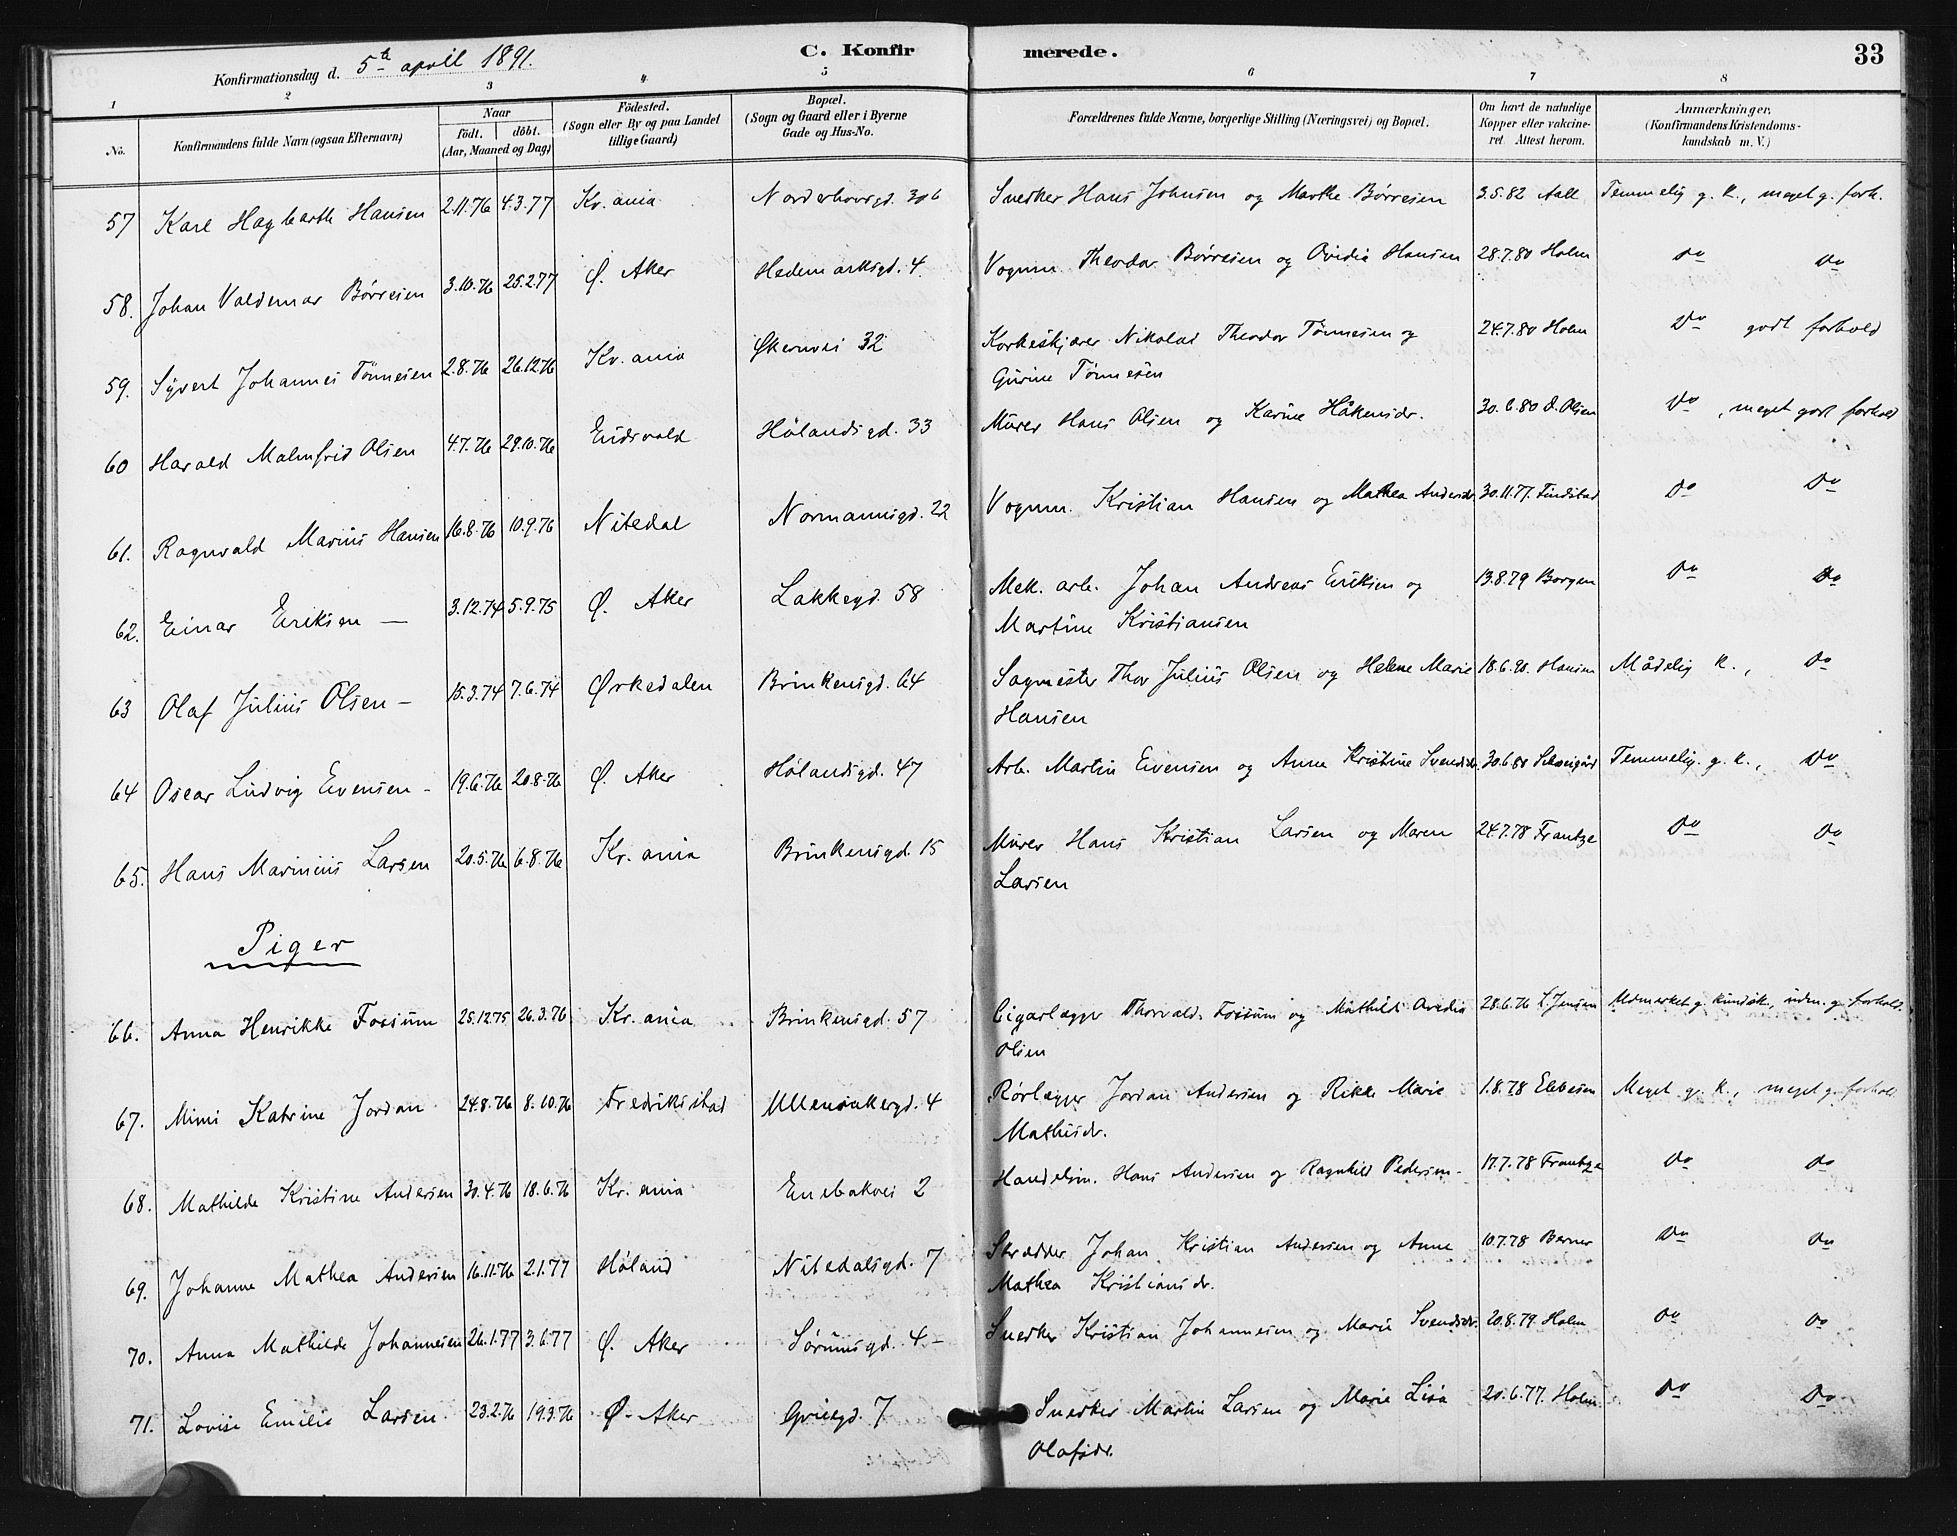 Konfirmationsdag d. 5te april 1891. C. Konfirmerede. 33
1 2 3 4 5 6 7 8
No. Konfirmandens fulde Navn (ogsaa Efternavn) Naar født. døbt. (Aar, Maaned og Dag) Fødested. (Sogn eller By og paa Landet tillige Gaard) Bopæl. (Sogn og Gaard eller i Byerne Gade og Hus-No. Forældrenes fulde Navne, borgerlige Stilling (Næringsvei) og Bopæl. Om havt de naturlige Kopper eller vakcineret Attest herom. Anmærkninger, (Konfirmandens Kristendomskundskab m. V.)
57 Karl Hagbarth Hansen 2.11.76 4.3.77 Kr.ania Norderhovsgd. 30b Snedker Hans Johnsen og Marthe Børresen 3.5.82 Aall Temmelig g. k., meget g. forh.
58. Johan Valdemar Børresen 3.10.76 25.2.77 Ø. Aker Hedemarksgd. 4 Vognm. Theodor Børresen og Ovidia Hansen 28.7.80 Holm Do Do
59. Syvert Johannes Tønnesen 2.8.76 26.12.76 Kr.ania Økernvei 32 Korkeskjærer Nikolai Theodor Tønnesen og 24.7.80 Holm Do godt forhold
Gurine Tønnesen
60 Harald Malmfrid Olsen 4.7.76 29.10.76 Eidsvold Hølandsgd. 33 Murer Hans Olsen og Karine Håkensdr. 30.6.80 O. Olsen Do , meget godt forhold
61. Ragnvald Marius Hansen 16.8.76 10.9.76 Nitedal Normannsgd. 22 Vognm. Kristian Hansen og Mathea Andersdr 30.11.77. Findstad Do Do
62. Einar Eriksen — 3.12.74 5.9.75 Ø. Aker Lakkegd. 58 Mek. arb. Johan Andreas Eriksen og 13.8.79 Borgen Do Do
Martine Kristiansen
63 Olaf Julius Olsen – 15.3.74 7.6.74 Ørkedalen Brinkensgd. 64 Sagmester Thor Julius Olsen og Helene Marie 18.6.90. Hansen Mådelig k., Do
Hansen
64 Oscar Ludvig Evensen – 19.6.76 20.8.76 Ø. Aker Hølandsgd. 47 Arb. Martin Evensen og Anne Kristine Svendsdr. 30.6.80 Temmelig. g. k., Do
65. Hans Marinius Larsen 20.5.76 6.8.76 Kr.ania Brinkensgd. 15 Murer Hans Kristian Larsen og Maren 24.7.78 Frantze Do Do
Larsen
Piger
66. Anna Henrikke Fossum 25.12.75 26.3.76 Kr.ania Brinkensgd. 57 Cigarlægger Thorvald. Fossum og Mathilde Avedia 28.6.76 L. Jensen Udmerket g. kundsk., udm. g. forhold.
Olsen
67. Mimi Katrine Jordan 24.8.76 8.10.76 Fredrikstad Ullensakergd. 4 Rørlægger Jordan Andersen og Rikke Marie 1.8.78 Ebbesen Meget g. k., meget g. forhold
Mathisdr.
68. Mathilde Kristine Andersen 30.4.76 18.6.76 Kr.ania Enebakvei 2 Handelsm. Hans Andersen og Ragnhild Pedersen – 17.7.78 Frantze Do Do
69. Johanne Mathea Andersen 16.11.76 2.1.77 Høland Nitedalsgd. 7 Skrædder Johan Kristian Andersen og Anne 10.7.78 Berner Do Do
Mathea Kristiansdr.
70. Anna Mathilde Johannesen 26.1.77 3.6.77 Ø. Aker Sørumsgd. 4 – Snedker Kristian Johannesen og Marie Svendsdr. 20.8.79 Holm Do Do
71. Lovise Emilie Larsen. 23.2.76 19.3.76 Ø. Aker Griesgd. 7 Snedker Martin Larsen og Marie Lisa 20.6.77. Holm Do Do
Olafsdr.